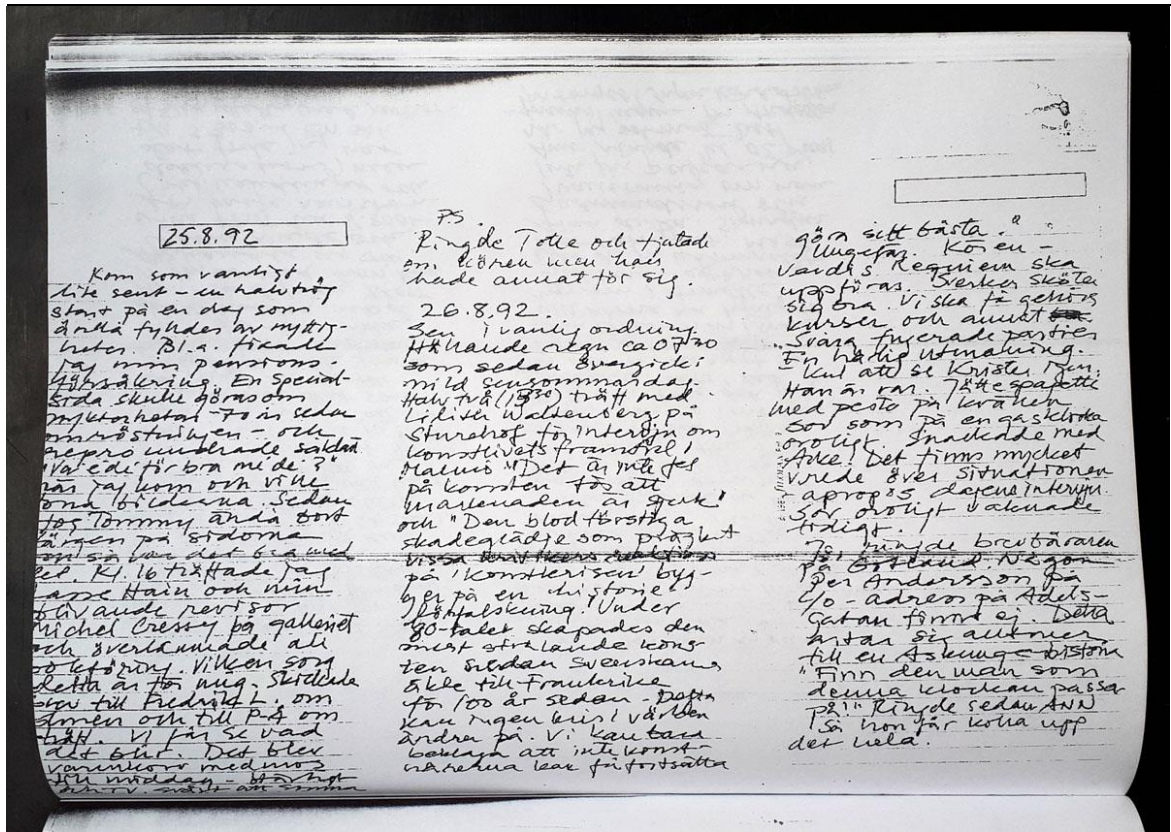 25.8.92
Kom som vanligt
lite sent - en halvtrög
start på en dag som
ändå fylldes av nyttig-
heter. Bl.a. fixade
jag min pensions
försäkring. En special-
sida skulle göras om
omröstningen - och
repro undrade sådan
när jag kom och ville
bilderna. Sedan
tog Tommy ända bort
färgen på sidorna
det bra med
Kl. 16 träffade jag
Lasse Hain och min
blivande revisor
Michel Cressy på galleriet
och överlämnade all
bokföring. Vilken sorg
detta är för mig. Skickade
brev till Fredrik L. om
och till P-A om
Vi får se vad
det blir. Det blev
varmkorv med mos
till middag -
svårt att somna
P.S.
Ringde Tolle och tjatade
om kören men han
hade annat för sig.
26.8.92.
Sen i vanlig ordning.
Hällande regn ca 0730
som sedan övergick i
mild sensommardag.
Halv två (1330) träff med
Lilith Waltenberg på
Sturehof för intervju om
konstlivets framtid i
Malmö "Det är inte fel
på konsten för att
marknaden är sjuk"
och "Den blodtörstiga
skadeglädje som präglat
vissa
på 'konstkrisen' byg-
ger på en historie-
förfalskning! Under
80-talet skapades den
mest strålande kons-
ten sedan svenskarna
åkte till Frankrike
för 100 år sedan. Detta
kan ingen kris i världen
ändra på. Vi kan bara
beklaga att inte konst-
närerna kan få fortsätta
göra sitt bästa."
Ungefär. Kören -
Verdis Requiem ska
uppföras. Sverker sköter
sig bra. Vi ska få gehörs
kurser och annat
Svåra fugerade partier
En härlig utmaning.
Kul att se Krister igen.
Han är rar. Jättespagetti
med pesto på kvällen
Sov som på en gasklocka
oroligt. Snackade med
Acke! Det finns mycket
vrede över situationen
apropos dagens intervju.
Sov oroligt vaknade
tidigt.
ringde brevbäraren
på Gotland. Någon
Per Andersson på
c/o - adress på Adels-
Gatan finns ej. Detta
artar sig alltmer
till en Askunge-historia
"Finn den man som
denna klockan passar
på!" Ringde sedan ANN
så hon får kolla upp
det hela.